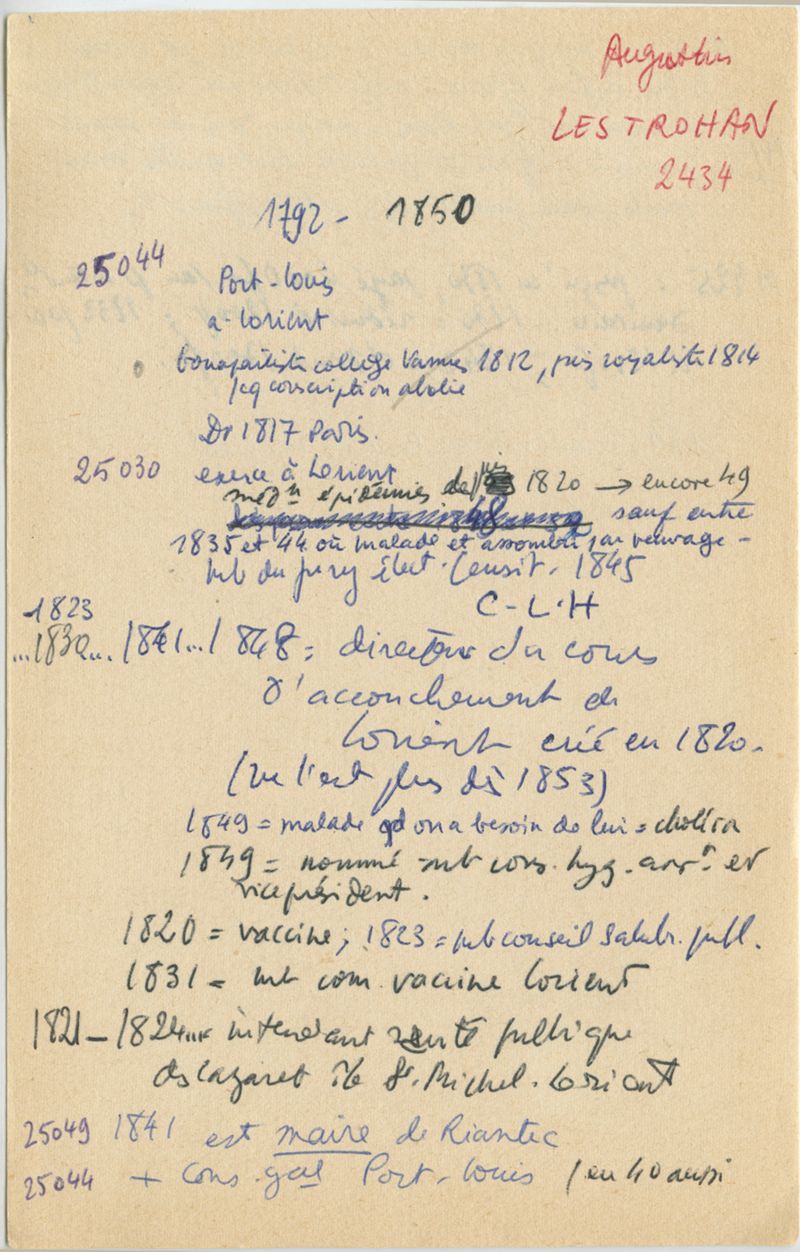 Augustin
LESTROHAN
2434
1792 - 1850
25044 Port-Louis
à Lorient
bonapartiste collège Vannes 1812, puis royaliste 1814
pcq conscription abolie
Dr 1817 Paris.
25030 exerce à Lorient
méd n épidémies depuis 1820 → encore 49
sauf entre
1835 et 44 où malade et assombri par veuvage -
mb du jury élect. censit. 1845
C-L.H
1823
...1830... 1841...1848 = directeur du cours
d'accouchement de
Lorient créé en 1820.
(ne l'est plus dès 1853)
1849 = malade qd on a besoin de lui = choléra
1849 = nommé mb cons. hyg. arrt et
vice président.
1820 = vaccine; 1823 = mb conseil salubr. publ.
1831 = mb com. vaccine Lorient
1821 - 1824... intendant santé publique
ds lazaret île St. Michel. Lorient
25049 1841 est maire de Riantec
25044 + cons. gal Port-Louis / en 40 aussi